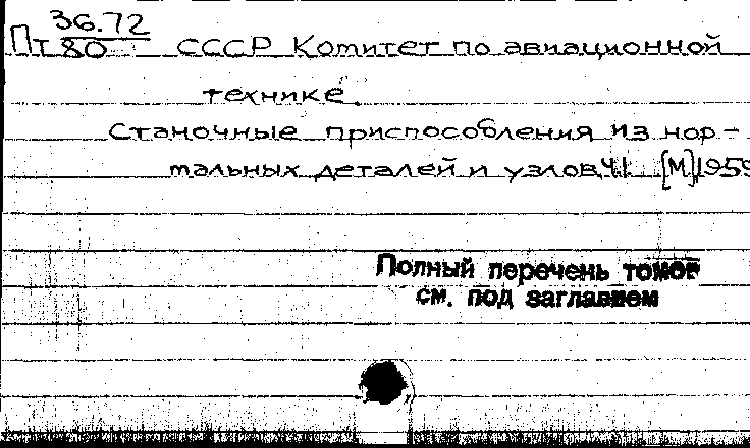 Пт 36.72
80 СССР Комитет по авиационной
технике.
Станочные приспособления из нор-
мальных деталей и узлов, ч.1 [М] 1959
Полный перечень томов
см. под заглавием